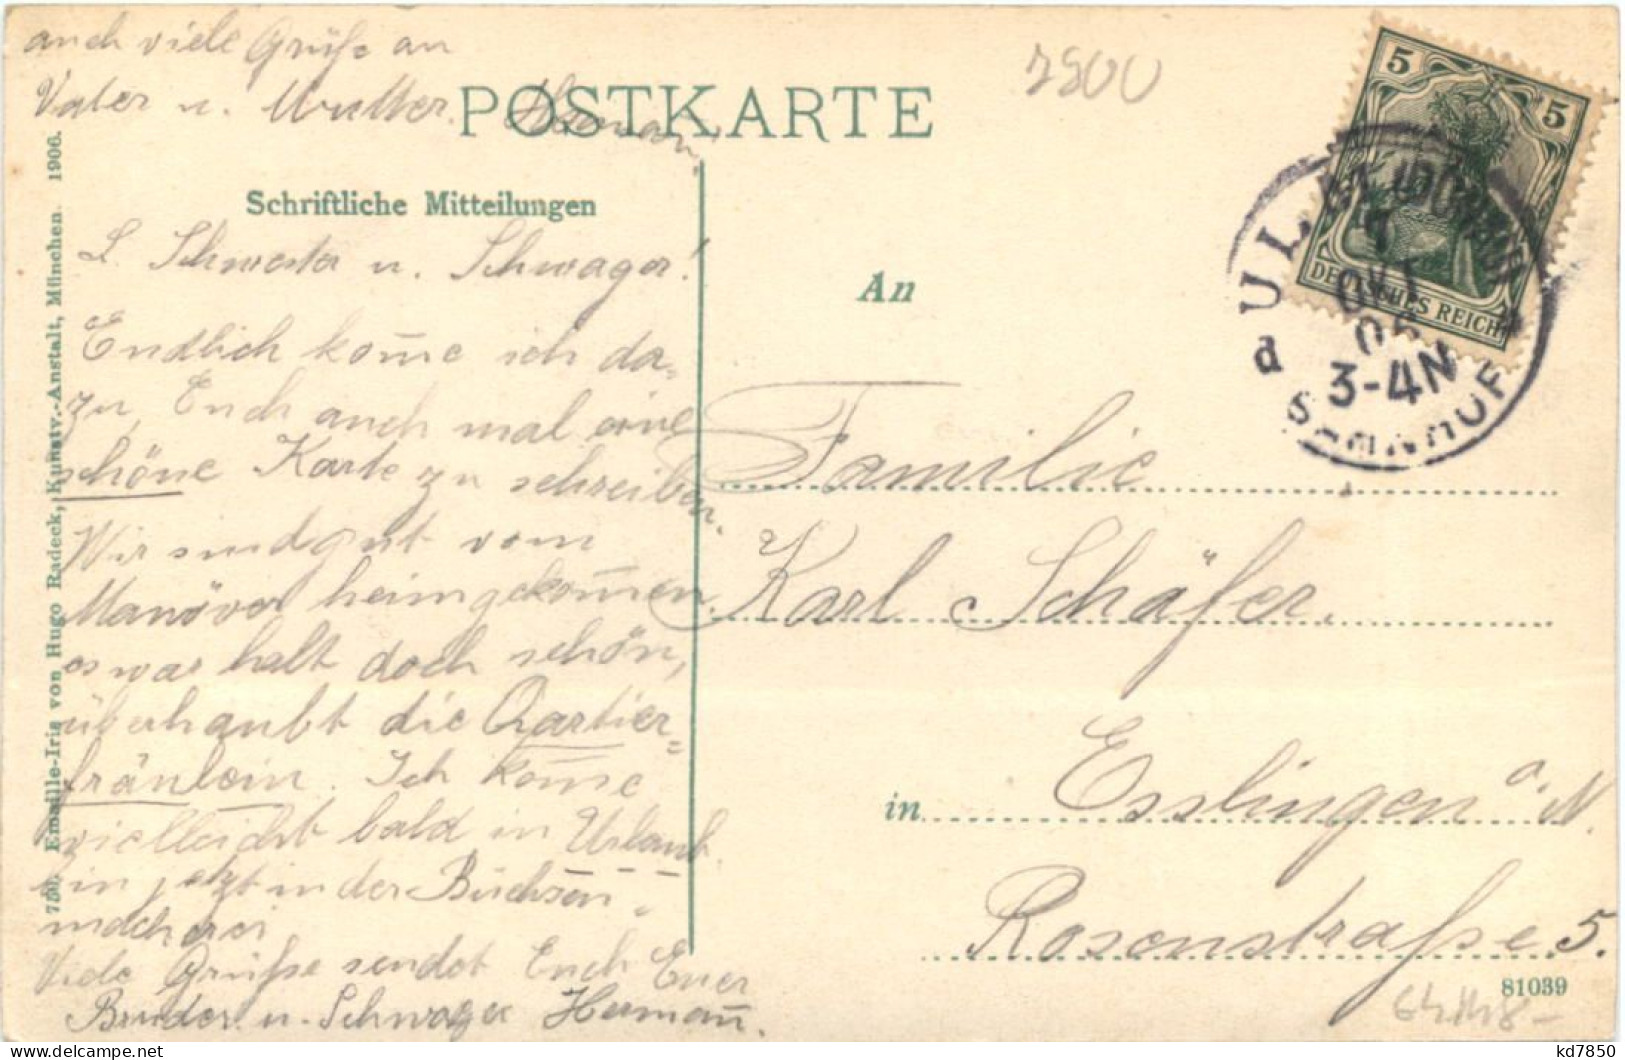 auch viele Grüße an
Vater u. Mutter. Herman
POSTKARTE
7300
5
5
DEUTSCHES REICH
ULM (DONAU)
OKT
06
3-4N
d
BAHNHOF
Schriftliche Mitteilungen
L. Schwester u. Schwager!
Endlich kom̄e ich da-
zu, Euch auch mal eine
schöne Karte zu schreiben.
Wir sind gut vom
Manöver heimgekom̄en.
es war halt doch schön,
überhaubt die Qartier-
fränlein. Ich kom̄e
vielleicht bald in Urlaub.
bin jetzt in der Büchsen-
macherei
Viele Grüße sendet Euch Euer
Bruder u. Schwager Herman̄.
An
Familie
Karl Schäfer.
in
Esslingen a. N.
Rosenstraße 5.
81039
750. Emaille-Iris von Hugo Radeck, Kunstv.-Anstalt, München. 1906.
kd7850